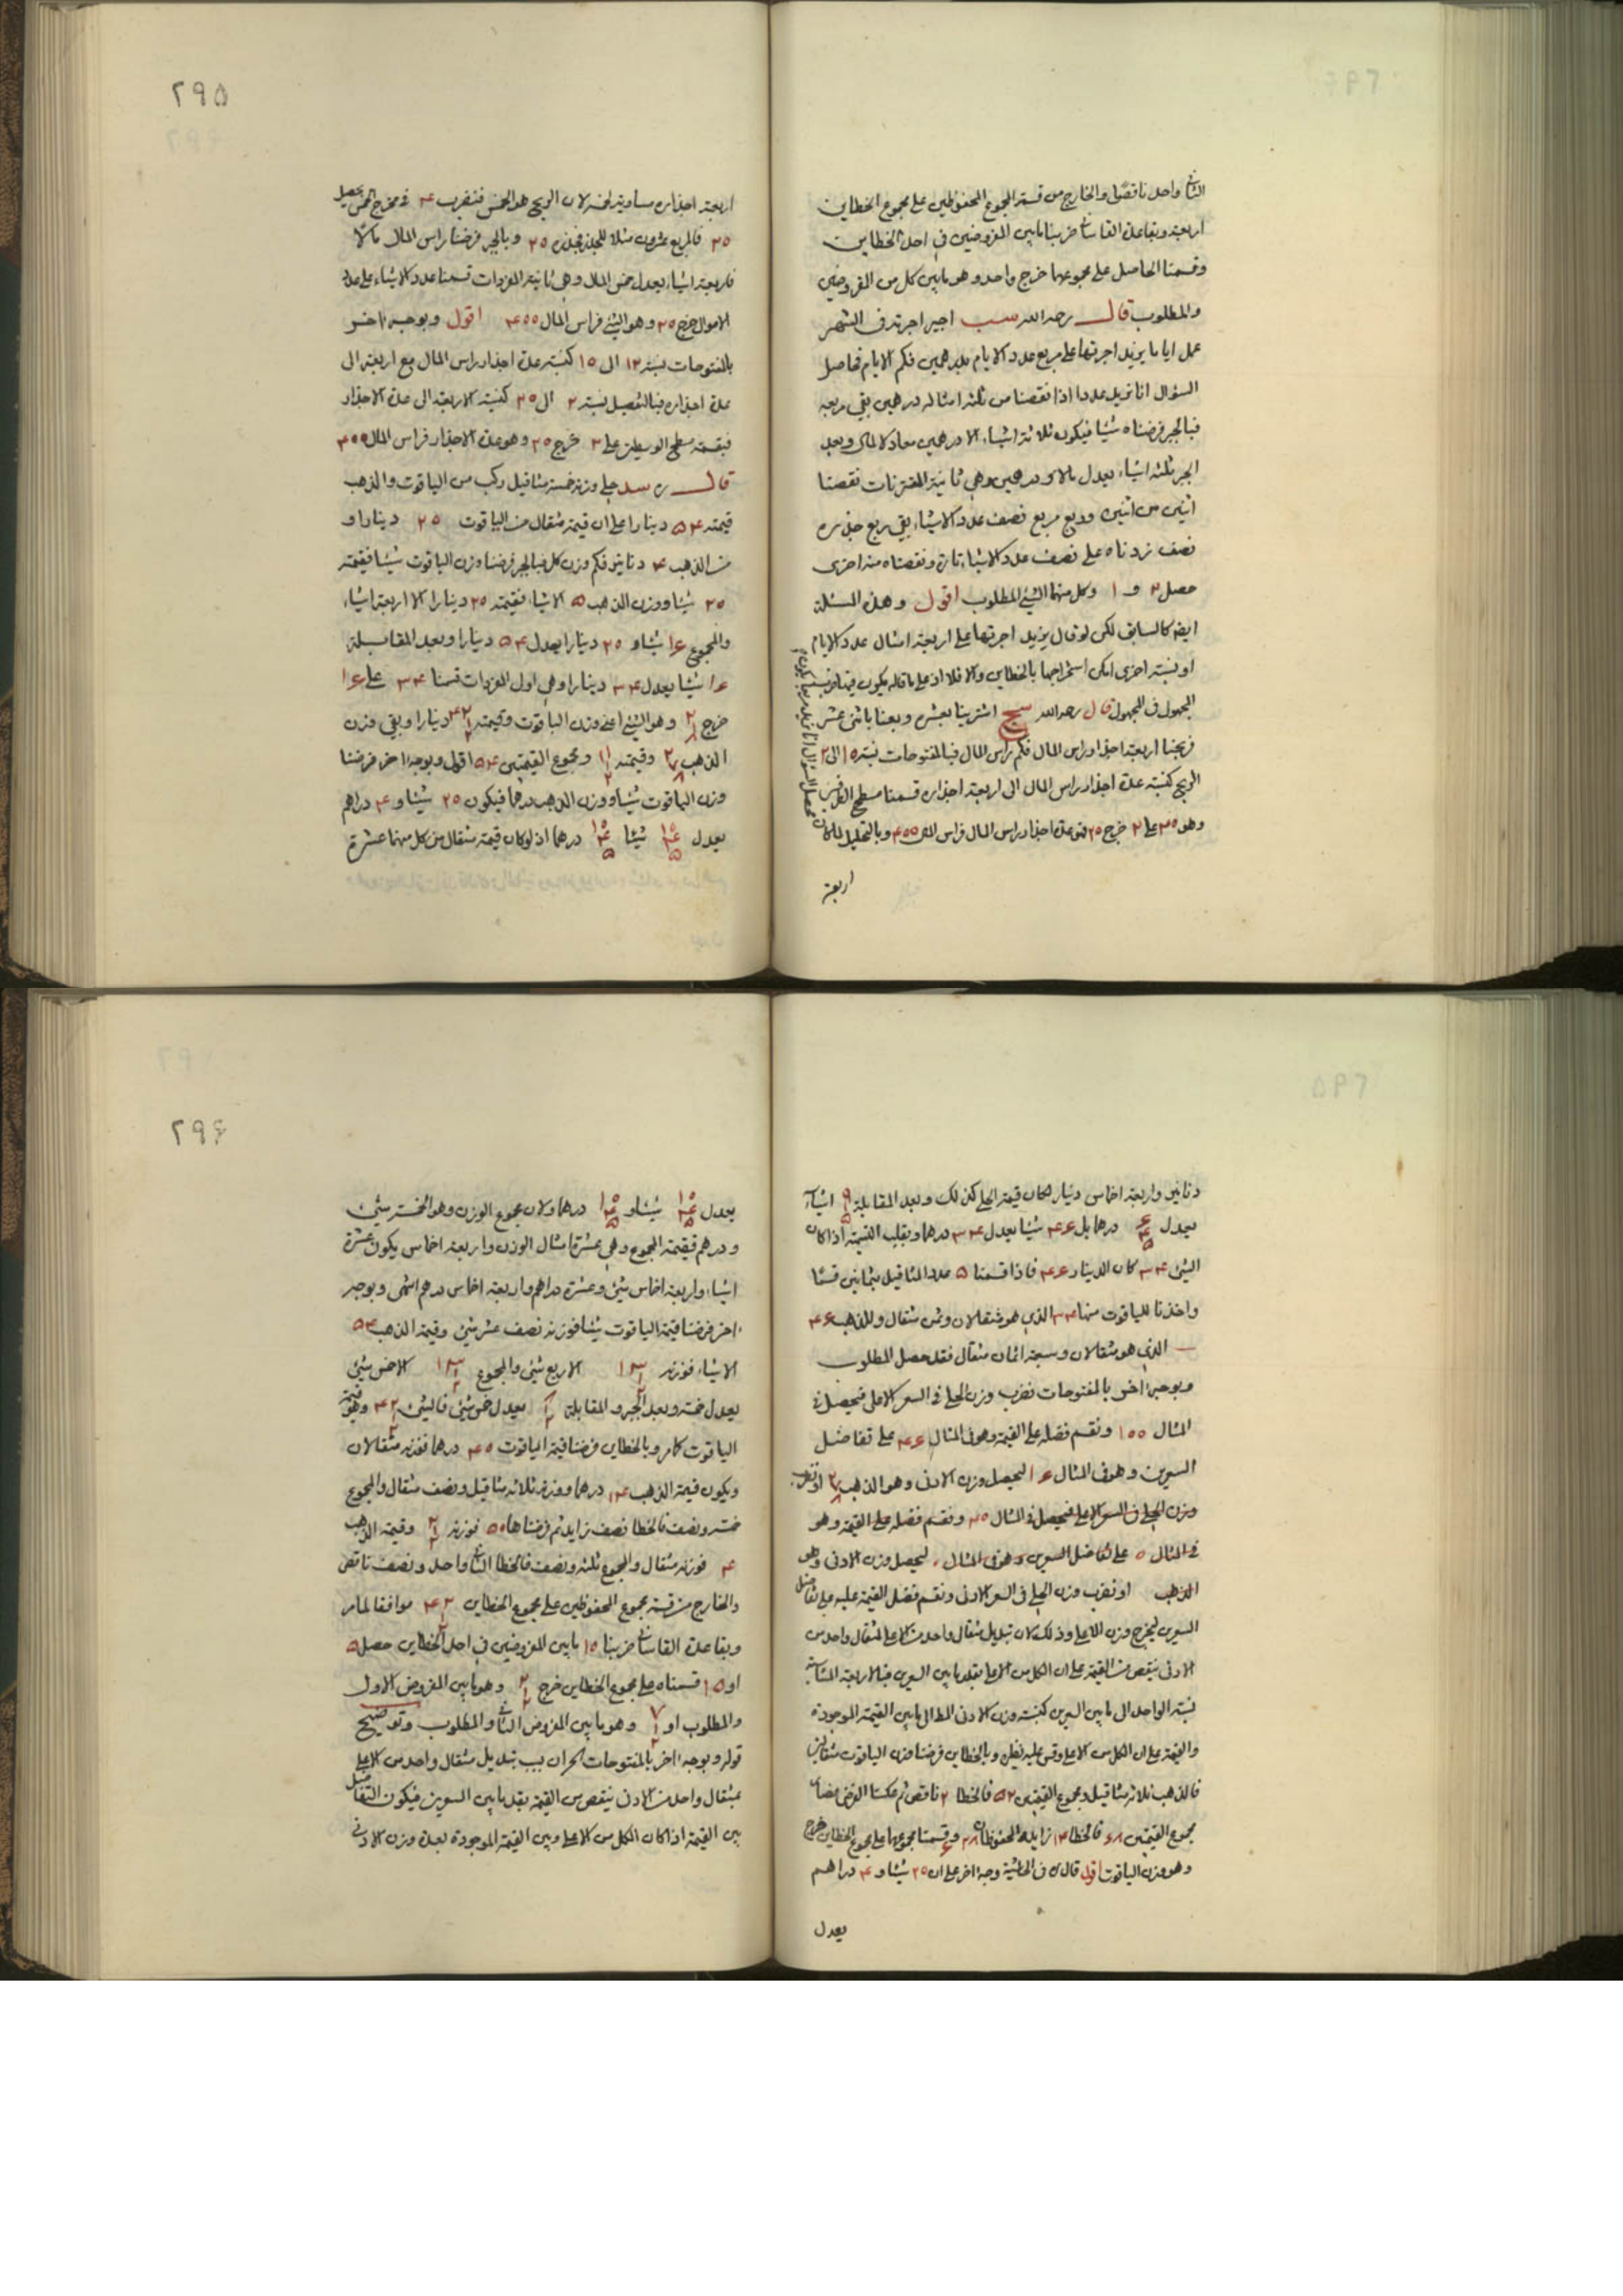 الثانى واحد ناقص والخارج من قسمة مجموع المحفوظين على مجموع الخطاين
اربعة وبقاعدة القاسانى ضربنا ما بين المفروضين فى احد الخطاين
وقسمنا الحاصل على مجموعهما خرج واحد وهو ما بين كل من المفروضين
والمطلوب قال رحمه الله سب اجير اجرته فى الشهر
عمل اياما يزيد اجرتها على مربع عدد الايام بدرهمين فكم الايام فحاصل
السؤال انا نريد عددا اذا نقصنا من ثلثة امثاله درهمين بقى مربعه
فبالجبر فرضناه شيئا فيكون ثلاثة اشياء الا درهمين معادلا لمال وبعد
الجبر ثلثة اشياء يعدل مالا ودرهمين وهى ثانية المقترنات نقصنا
اثنين من اثنين وربع مربع نصف عدد الاشياء بقى ربع جذره
نصف زدناه على نصف عدد الاشياء تارة ونقصناه منه اخرى
حصل ٢ و ١ وكل منهما الشئ المطلوب اقول وهذه المسئلة
ايضا كالسابق لكن لو قال يزيد اجرتها على اربعة امثال عدد الايام
او نسبة اخرى امكن استخراجها بالخطاين والا فلا اذ على ما قاله يكون فيها ضرب
المجهول فى المجهول قال رحمه الله سج اشترينا بعشرة وبعنا باثنى عشر
فربحنا اربعة اجذار راس المال فكم راس المال فبالمفتوحات نسبة ١٠ الى ٢
الربح كنسبة عدة اجذار راس المال الى اربعة اجذاره قسمنا مسطح الطرفين
وهو ٤٠ على ٢ خرج ٢٠ فهو عدة اجذار راس المال فراس المال ٤٠٠ وبالتحليل لما كان
اربعة
٢٩٥
اربعة اجذاره مساوية لخمسه لان الربح هو الخمس فنضرب ٤ فى مخرج الخمس يحصل
٢٠ فالمربع عشرون مثلا للجذر فجذره ٢٠ وبالجبر فرضنا راس المال مالا
فاربعة اشياء يعدل خمس المال وهى ثانية المفردات قسمنا عدد الاشياء على عدد
الاموال خرج ٢٠ وهو الشئ فراس المال ٤٠٠ اقول وبوجه اخر
بالمفتوحات نسبة ١٢ الى ١٠ كنسبة عدة اجذار راس المال مع اربعة الى
عدة اجذاره فبالتفصيل نسبة ٢ الى ١٠ كنسبة الاربعة الى عدة الاجذار
فبقسمة مسطح الوسطين على ٢ خرج ٢٠ وهو عدة الاجذار فراس المال ٤٠٠
قال ره سد حلى وزنه خمسة مثاقيل ركب من الياقوت والذهب
قيمته ٥٤ دينارا على ان قيمة مثقال من الياقوت ٢٠ دينارا و
من الذهب ٤ دنانير فكم وزن كل فبالجبر فرضنا وزن الياقوت شيئا فقيمته
٢٠ شيئا ووزن الذهب ٥ الا شيئا فقيمته ٢٠ دينارا الا اربعة اشياء
والمجموع ١٦ شيئا و ٢٠ دينارا يعدل ٥٤ دينارا وبعد المقابلة
١٦ شيئا يعدل ٣٤ دينارا وهى اول المفردات قسمنا ٣٤ على ١٦
خرج ٢ ١/٨ وهو الشئ اعنى وزن الياقوت وقيمته ٤٢ ١/٢ دينارا وبقى وزن
الذهب ٢ ٧/٨ وقيمته ١١ ١/٢ ومجموع القيمتين ٥٤ اقول وبوجه اخر فرضنا
وزن الياقوت شيئا ووزن الذهب درهما فيكون ٢٠ شيئا و ٤ دراهم
يعدل ١٠ ٤/٥ شيئا ١٠ ٤/٥ درهما اذ لو كان قيمة مثقال من كل منهما عشرة
دنانير واربعة اخماس دينار لكان قيمة الحلى كذلك وبعد المقابلة ٩ ١/٥ اشياء
يعدل ٦ ٤/٥ درهما بل ٤٦ شيئا يعدل ٣٤ درهما وبقلب القسمة اذا كان
الشئ ٣٤ كان الدينار ٤٦ فاذا قسمنا ٥ عدد المثاقيل بثمانين قسما
واخذنا للياقوت منها ٣٤ الذى هو مثقالان وثمن مثقال وللذهب ٤٦
الذى هو مثقالان وسبعة اثمان مثقال فقد حصل المطلوب
وبوجه اخر بالمفتوحات نضرب وزن الحلى فى السعر الاعلى فيحصل فى
المثال ١٠٠ ونقسم فضله على القيمة وهو فى المثال ٤٦ على تفاضل
السعرين وهو فى المثال ١٦ ليحصل وزن الادنى وهو الذهب ٢ ٧/٨ او نضرب
وزن الحلى فى السعر الاعلى فيحصل فى المثال ٢٠ ونقسم فضله على القيمة وهو
فى المثال ٥ على تفاضل السعرين وهو فى المثال ليحصل وزن الادنى وهو
الذهب او نضرب وزن الحلى فى السعر الادنى ونقسم فضل القيمة عليه على تفاضل
السعرين ليخرج وزن الاعلى وذلك لان تبديل مثقال واحد من الاعلى لمثقال واحد من
الادنى ينقص من القيمة على ان الكل من الاعلى بقدر ما بين السعرين فبالاربعة المتناسبة
نسبة الواحد الى ما بين السعرين كنسبة وزن الادنى المط الى ما بين القيمة الموجودة
والقيمة على ان الكل من الاعلى وقس عليه نظيره وبالخطاين فرضنا وزن الياقوت مثقالين
فالذهب ثلاثة مثاقيل ومجموع القيمتين ٥٢ فالخطا ٢ ناقص ثم عكسنا الفرض فصار
مجموع القيمتين ٦٨ فالخطا ١٤ زايد فالمحفوظان ٢٨ و ٦ وقسمنا مجموعهما على مجموع الخطاين خرج
وهو وزن الياقوت اقول قال ره فى الحاشية وجه اخر على ان ٢٠ شيئا و ٤ دراهم
يعدل
٢٩٦
يعدل ١٠ ٤/٥ شيئا و ١٠ ٤/٥ درهما ولان مجموع الوزن وهو الخمسة شئ
ودرهم فقيمة المجموع وهى عشرة امثال الوزن واربعة اخماس يكون عشرة
اشياء واربعة اخماس شئ وعشرة دراهم واربعة اخماس درهم انتهى وبوجه
اخر فرضنا قيمة الياقوت شيئا فوزنه نصف عشر شئ وقيمة الذهب ٥٤
الا شيئا فوزنه ١٣ ١/٢ الا ربع شئ والمجموع ١٣ ١/٢ الا خمس شئ
يعدل خمسة وبعد الجبر والمقابلة ٨ ١/٢ يعدل خمس شئ فالشئ ٤٢ ١/٢ وهو قيمة
الياقوت كما مر وبالخطاين فرضنا قيمة الياقوت ٤٠ درهما فوزنه مثقالان
ويكون قيمة الذهب ١٤ درهما ووزنه ثلاثة مثاقيل ونصف مثقال والمجموع
خمسة ونصف فالخطا نصف زايد ثم فرضناها ٥٠ فوزنه ٢ ١/٢ وقيمة الذهب
٤ فوزنه مثقال والمجموع ثلثة ونصف فالخطا الثانى واحد ونصف ناقص
والخارج من قسمة مجموع المحفوظين على مجموع الخطاين ٤٢ ١/٢ موافقا لما مر
وبقاعدة القاسانى ضربنا ١٠ ما بين المفروضين فى احد الخطاين حصل ٥
او ١٥ قسمناه على مجموع الخطاين خرج ٢ ١/٢ وهو ما بين المفروض الاول
والمطلوب او ٧ ١/٢ وهو ما بين المفروض الثانى والمطلوب وتوضيح
قوله وبوجه اخر بالمفتوحات الخ ان بسبب تبديل مثقال واحد من الاعلى
بمثقال واحد من الادنى ينقص من القيمة بقدر ما بين السعرين فيكون التفاضل
بين القيمة اذا كان الكل من الاعلى وبين القيمة الموجودة بعدة وزن الادنى